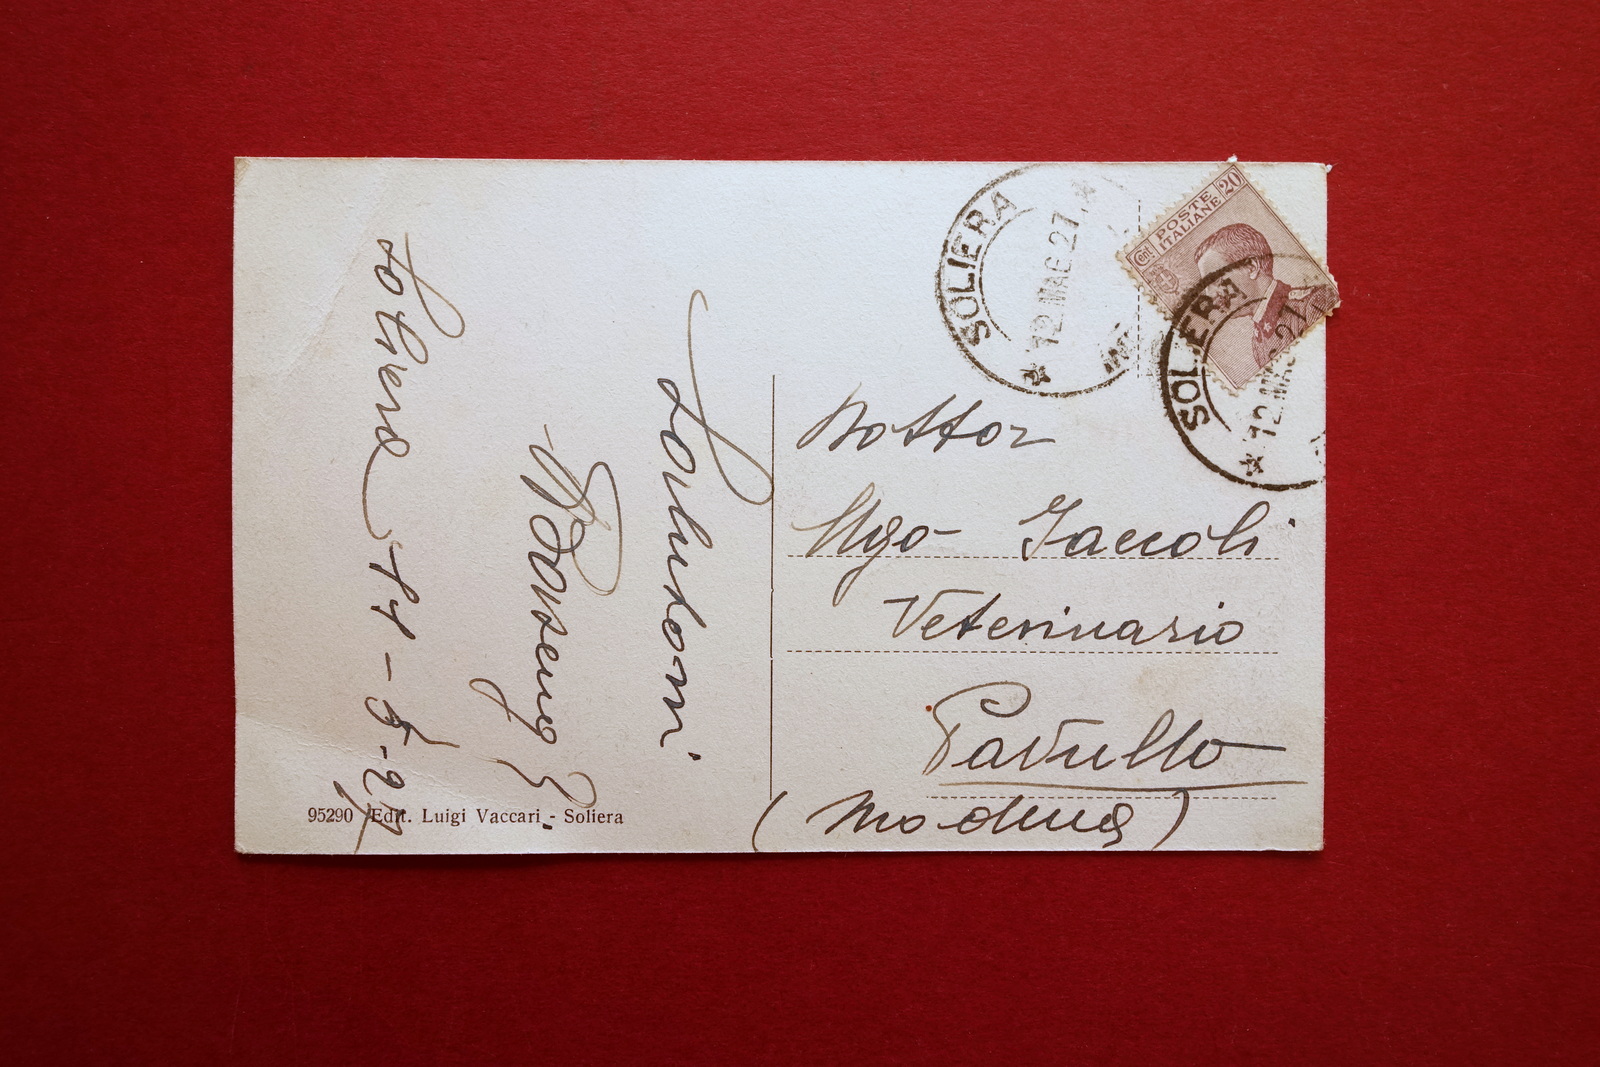 Soliera 11-5-27
Salutoni
Dottor
Ugo Jaccoli
Veterinario
Pavullo
(Modena)
95290 Edit. Luigi Vaccari - Soliera
SOLIERA
* 12.MAG.27.*
Cent POSTE ITALIANE 20
SOLIERA
* 12.MAG.27